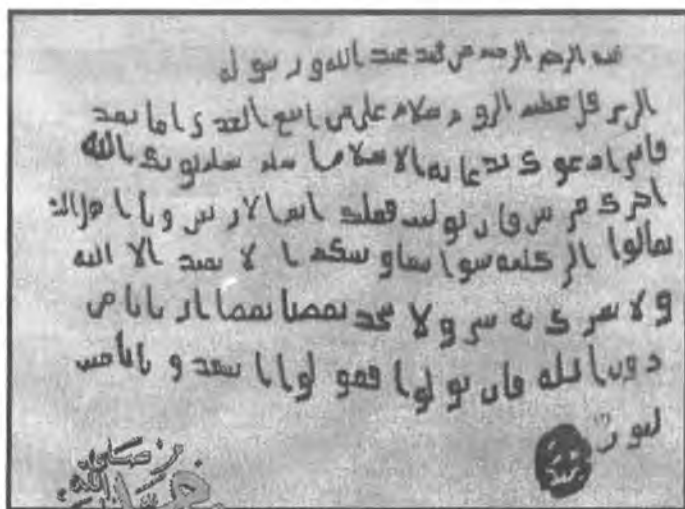 بسم الله الرحمن الرحيم من محمد عبد الله ورسوله
الى هرقل عظيم الروم سلام على من اتبع الهدى اما بعد
فانى ادعوك بدعاية الاسلام اسلم تسلم يوتك الله
اجرك مرتين فان توليت فعليك اثم الاريسين ويا اهل ال
تعالوا الى كلمة سوا بيننا وبينكم ا لا نعبد الا الله
ولا نشرك به شى ولا يتخذ بعضنا بعضا اربابا من
دون الله فان تولوا فقولوا اشهدوا بانا مس
لمون